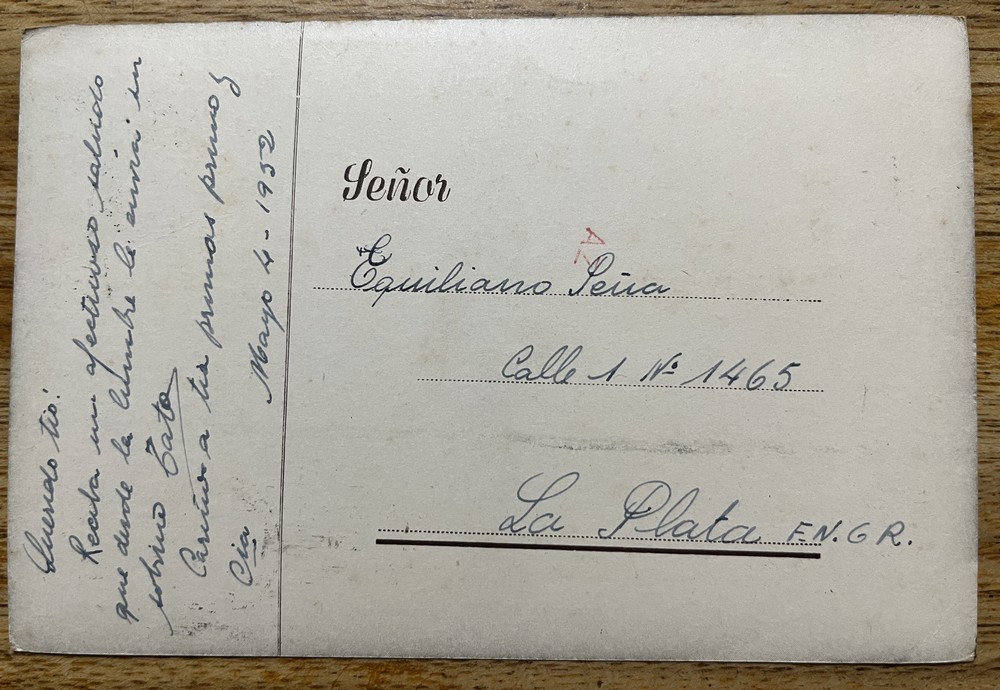 Querido tío:
Reciba un afectuoso saludo
que desde la cumbre le envía su
sobrino Tato
Cariños a tia primas primo y
Cia
Mayo 4-1952
Señor
Equiliano Peña
Calle 1 Nº 1465
La Plata F.N.G R.